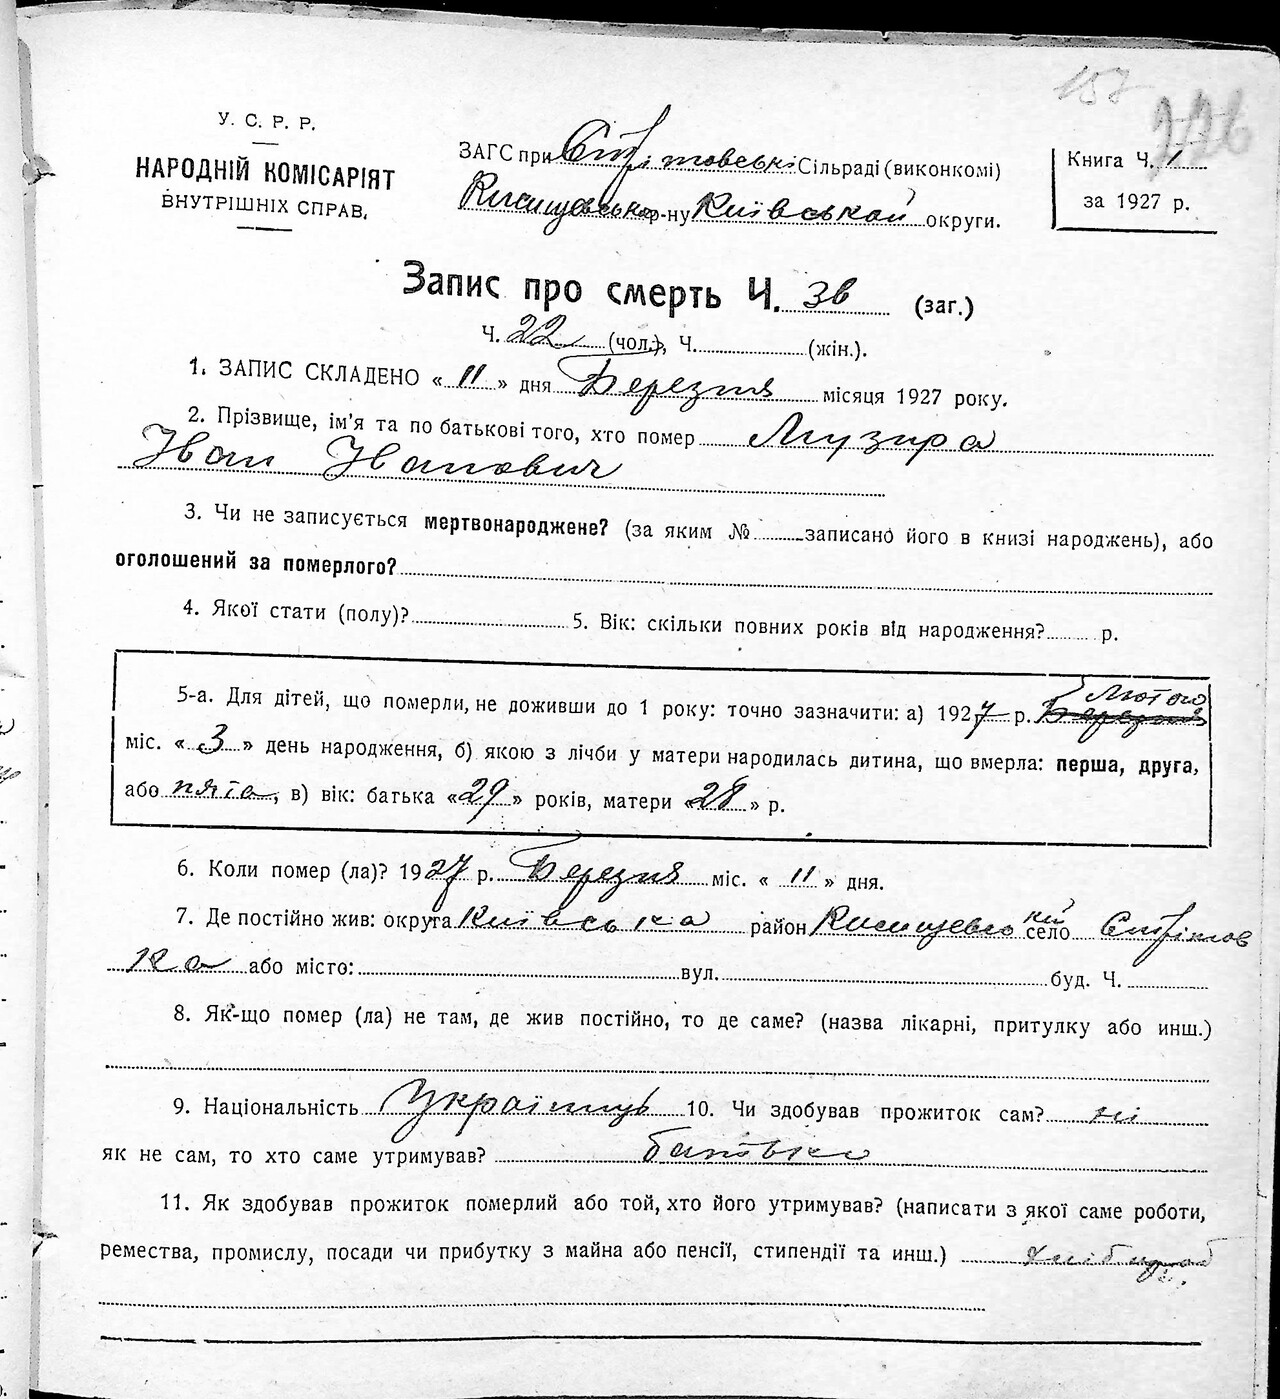 157
226
У. С. Р. Р.
НАРОДНІЙ КОМІСАРІЯТ
ВНУТРІШНІХ СПРАВ,
ЗАГС при Стрітовські Сільраді (виконкомі)
р-ну Київській округи.
Книга Ч. 1
за 1927 р.
Запис про смерть Ч. 36 (заг.)
Ч. 22 (чол.), Ч. (жін.).
1. ЗАПИС СКЛАДЕНО « 11 » дня Березня місяця 1927 року.
2. Прізвище, ім'я та по батькові того, хто помер Музира
Іван Іванович
3. Чи не записується мертвонароджене? (за яким № записано його в книзі народжень), або
оголошений за померлого?
4. Якої стати (полу)? 5. Вік: скільки повних років від народження? р.
5-а. Для дітей, що померли, не доживши до 1 року: точно зазначити: а) 1927 р. Березня Лютого
міс. « 3 » день народження, б) якою з лічби у матери народилась дитина, що вмерла: перша, друга,
або пята, в) вік: батька «29» років, матери «28» р.
6. Коли помер (ла)? 1927 р. Березня міс. « 11 » дня.
7. Де постійно жив: округа Київська район село Стрітов
ка або місто: вул. буд. Ч.
8. Як-що помер (ла) не там, де жив постійно, то де саме? (назва лікарні, притулку або инш.)
9. Національність Українець 10. Чи здобував прожиток сам? ні
як не сам, то хто саме утримував? батько
11. Як здобував прожиток померлий або той, хто його утримував? (написати з якої саме роботи,
ремества, промислу, посади чи прибутку з майна або пенсії, стипендії та инш.) хлібороб